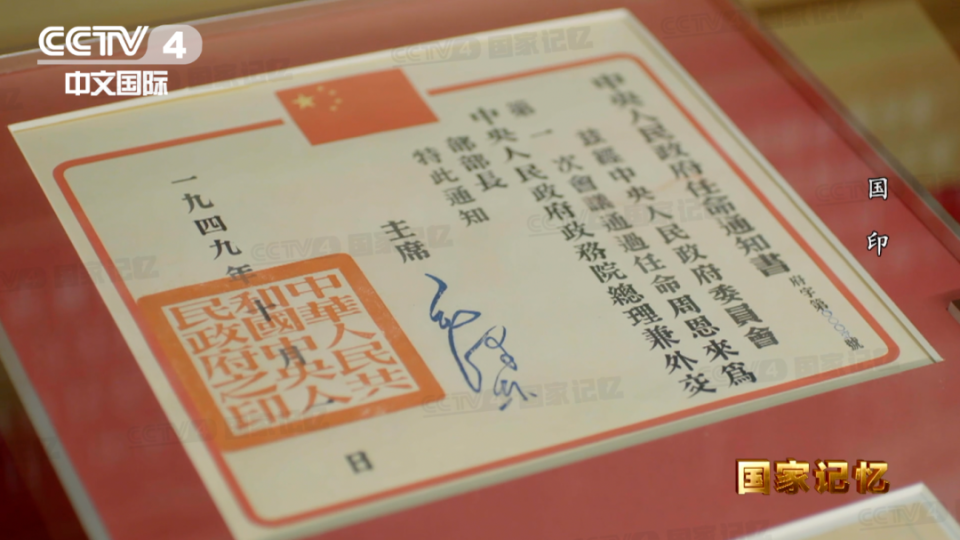 CCTV 4
中文国际
中央人民政府任命通知書
府字第
號
茲經中央人民政府委員會
第一次會議通過任命周恩來爲
中央人民政府政務院總理兼外交
部部長
特此通知
主席
一九四九年十月
日
中華人民共
和國中央人
民政府之印
国印
国家记忆
CCTV4 国家记忆